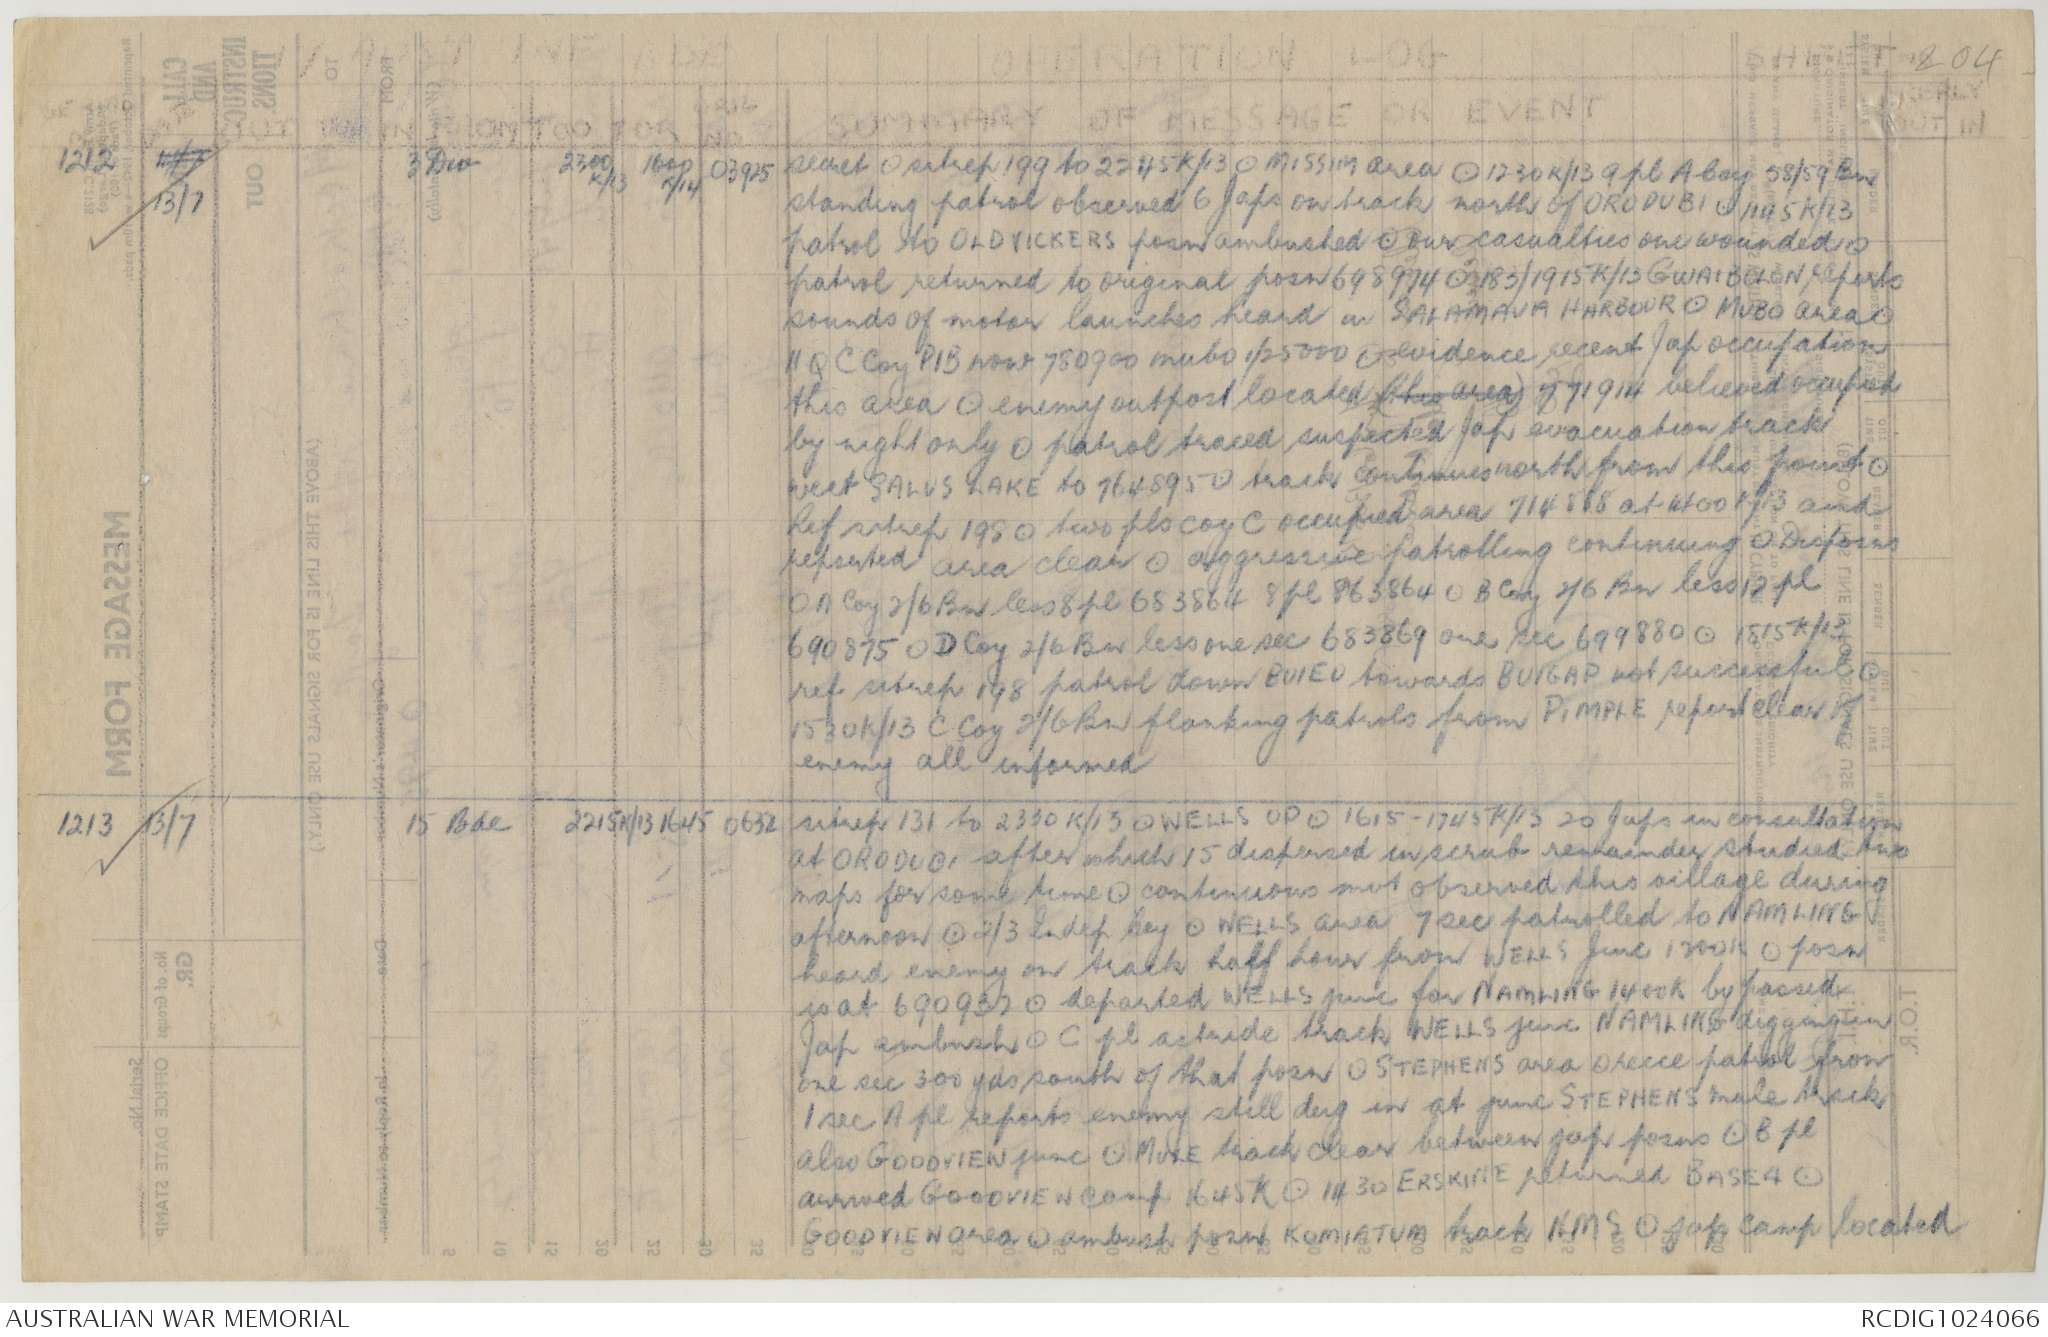 OPERATION LOG SHEET 204
OUT IN FROM TOO TOR ORIG NO SUMMARY OF MESSAGE OR EVENT REPLY OUT IN
1212 13/7 3 Div 2300 K/13 1600 K/14 03925 secret ⊙ sitrep 199 to 2245K/13 ⊙ MISSIM area ⊙ 1230K/13 9 pl A Coy 58/59 Bn
standing patrol observed 6 Japs on track north of ORODUBI ⊙ 1145K/13
patrol to OLD VICKERS posn ambushed ⊙ our casualties one wounded ⊙
patrol returned to original posn 698974 ⊙ 183/1915K/13 GWAIBOLON reports
sounds of motor launches heard in SALAMAUA HARBOUR ⊙ MUBO area ⊙
HQ C Coy PIB now 780900 mubo 1/25000 ⊙ evidence recent Jap occupation
this area ⊙ enemy outpost located (this area) 771914 believed occupied
by night only ⊙ patrol traced suspected Jap evacuation track
west SALUS LAKE to 764895 ⊙ track continues north from this point ⊙
Ref sitrep 198 ⊙ two pls coy C occupied area 714868 at 1400K/13 and
reported area clear ⊙ aggressive patrolling continuing ⊙ Disposns
⊙ A Coy 2/6 Bn less 8 pl 683864 8 pl 863864 ⊙ B Coy 2/6 Bn less 12 pl
690875 ⊙ D Coy 2/6 Bn less one sec 683869 one sec 699880 ⊙ 1815K/13
ref sitrep 198 patrol down BUIEU towards BUIGAP not successful ⊙
1530K/13 C Coy 2/6 Bn flanking patrols from PIMPLE report clear
enemy all informed
1213 13/7 15 Bde 2215K/13 1645 0632 sitrep 131 to 2330K/13 ⊙ WELLS OP ⊙ 1615-1745K/13 20 Japs in consultation
at ORODUBI after which 15 dispersed in scrub remainder studied two
maps for some time ⊙ continuous mvt observed this village during
afternoon ⊙ 2/3 Indep Coy ⊙ WELLS area 7 sec patrolled to NAMLING
heard enemy on track half hour from WELLS junc 1200K ⊙ posn
is at 690932 ⊙ departed WELLS junc for NAMLING 1400K by passed
Jap ambush ⊙ C pl astride track WELLS junc NAMLING digging in
one sec 300 yds south of that posn ⊙ STEPHENS area ⊙ recce patrol from
1 sec A pl reports enemy still dug in at junc STEPHENS mule track
also GOODVIEW junc ⊙ MULE track clear between jap posns ⊙ B pl
arrived GOODVIEW camp 1645K ⊙ 1430 ERSKINE returned BASE 4 ⊙
GOODVIEW area ⊙ ambush posn KOMIATUM track NMS ⊙ jap camp located
MESSAGE FORM
CALL AND INSTRUCTIONS
OUT
TO
FROM
(ABOVE THIS LINE IS FOR SIGNALS USE ONLY.)
Originator's Number
Date
In Reply to Number
GR.
No. of Groups
OFFICE DATE STAMP
Serial No.
T.O.R.
5 10 15 20 25 30 35
AUSTRALIAN WAR MEMORIAL RCDIG1024066